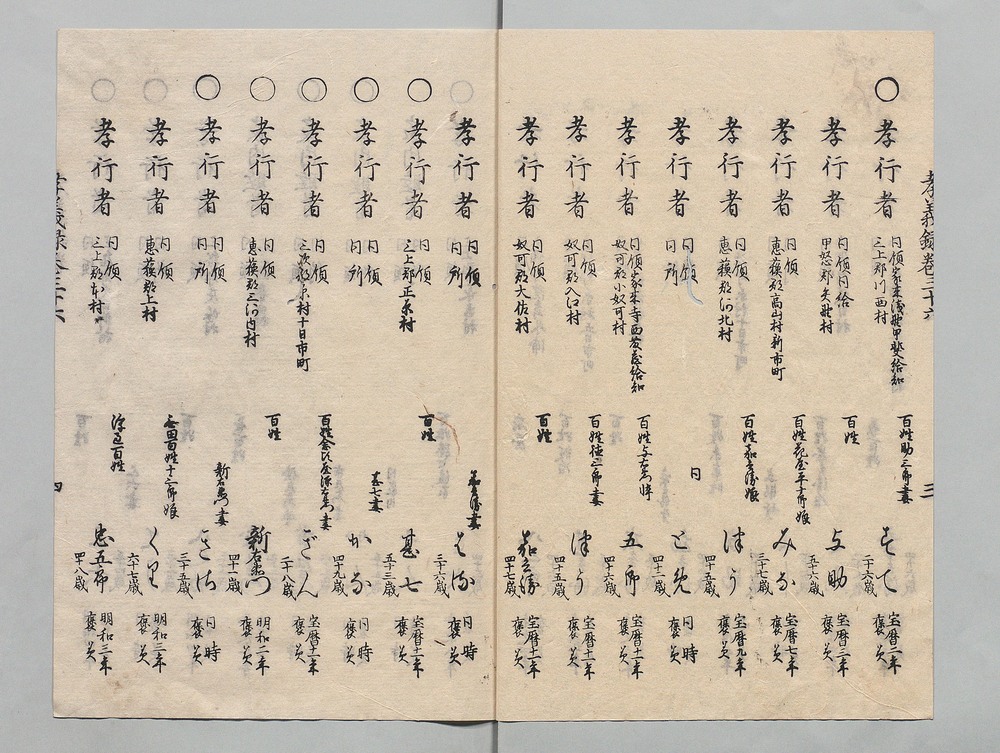 孝義録巻三十六
三
○孝行者
同領家来浅野甲斐給知
三上郡川西村
百姓助三郎妻
すて
三十六歳
宝暦二年
褒美
孝行者
同領同給
甲怒郡矢野村
百姓
与助
五十六歳
宝暦三年
褒美
孝行者
同領
恵蘇郡高山村新市町
百姓花屋平十郎娘
みな
三十七歳
宝暦七年
褒美
孝行者
同領
恵蘇郡川北村
百姓嘉兵衛娘
津う
四十五歳
宝暦九年
褒美
孝行者
同領
同所
同
とめ
四十二歳
同時
褒美
孝行者
同領家来寺西蔵給知
奴可郡小奴可村
百姓与右衛門悴
五郎
四十六歳
宝暦十一年
褒美
孝行者
同領
奴可郡入江村
百姓徳三郎妻
津う
四十二歳
宝暦十一年
褒美
孝行者
同領
奴可郡大佐村
百姓
茄兵衛
四十七歳
宝暦十一年
褒美
○孝行者
同領
同所
嘉兵衛妻
はる
三十六歳
同時
褒美
○孝行者
同領
三上郡正原村
百姓
甚七
五十三歳
宝暦十二年
褒美
○孝行者
同領
同所
甚七妻
かな
四十九歳
同時
褒美
○孝行者
同領
三次郡原村十日市町
百姓倉氏屋源右衛門妻
ごん
二十八歳
宝暦十二年
褒美
○孝行者
同領
恵蘇郡三河内村
百姓
新右衛門
四十一歳
明和二年
褒美
○孝行者
同領
同所
新右衛門妻
きち
三十五歳
同時
褒美
○孝行者
同領
恵蘇郡上村
百姓十三郎娘
くり
六十七歳
明和三年
褒美
○孝行者
同領
三上郡本村
百姓
忠五郎
四十八歳
明和三年
褒美
孝義録巻三十六
四